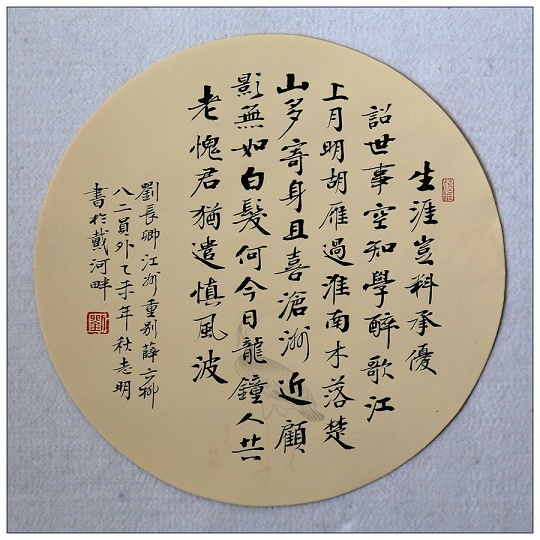 生涯豈料承優
詔世事空知學醉歌江
上月明胡雁過淮南木落楚
山多寄身且喜滄洲近顧
影無如白髮何今日龍鐘人共
老愧君猶遣慎風波
劉長卿江州重别薛六柳
八二員外乙未年秋志明
書於戴河畔